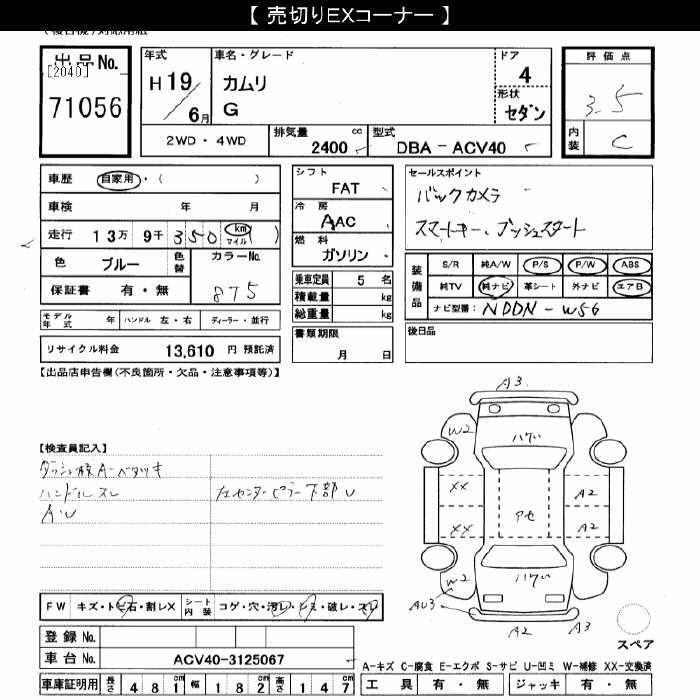 【 売切りEXコーナー 】
出品No.
[2040]
71056
年式
H 19
6月
車名・グレード
カムリ
G
ドア
4
形状
セダン
評価点
3.5
内装
C
2WD・4WD
排気量 cc
2400
型式
DBA - ACV40
車歴 自家用・( )
車検 年 月
走行 13万 9千 350 (km マイル)
色 ブルー 色替
カラーNo.
875
保証書 有・無
モデル年式 年 ハンドル 左・右 ディーラー・並行
リサイクル料金 13,610 円 預託済
シフト
FAT
冷房
AAC
燃料
ガソリン
乗車定員 5 名
積載量 kg
総重量 kg
書類期限
月 日
セールスポイント
バックカメラ
スマートキー、プッシュスタート
装備品
S/R 純A/W P/S P/W ABS
純TV 純ナビ 革シート 外ナビ エアB
ナビ型番: NDDN-W56
後日品
【出品店申告欄(不良箇所・欠品・注意事項等)】
【検査員記入】
ダッシュ板A-ベタツキ
ハンドルスレ
左センターピラー下部U
A・U
A3
W2
ハゲ小
XX
A2
XX
A2
アセ
W2
ハゲ小
AU3
A2
A3
スペア
FW キズ・トビ石・割レX シート内装 コゲ・穴・汚レ・シミ・破レ・スレ
登録 No.
車台 No. ACV40-3125067
車庫証明用 長さ 481cm 幅 182cm 高さ 147cm
A-キズ C-腐食 E-エクボ S-サビ U-凹ミ W-補修 XX-交換済
工具 有・無 ジャッキ 有・無